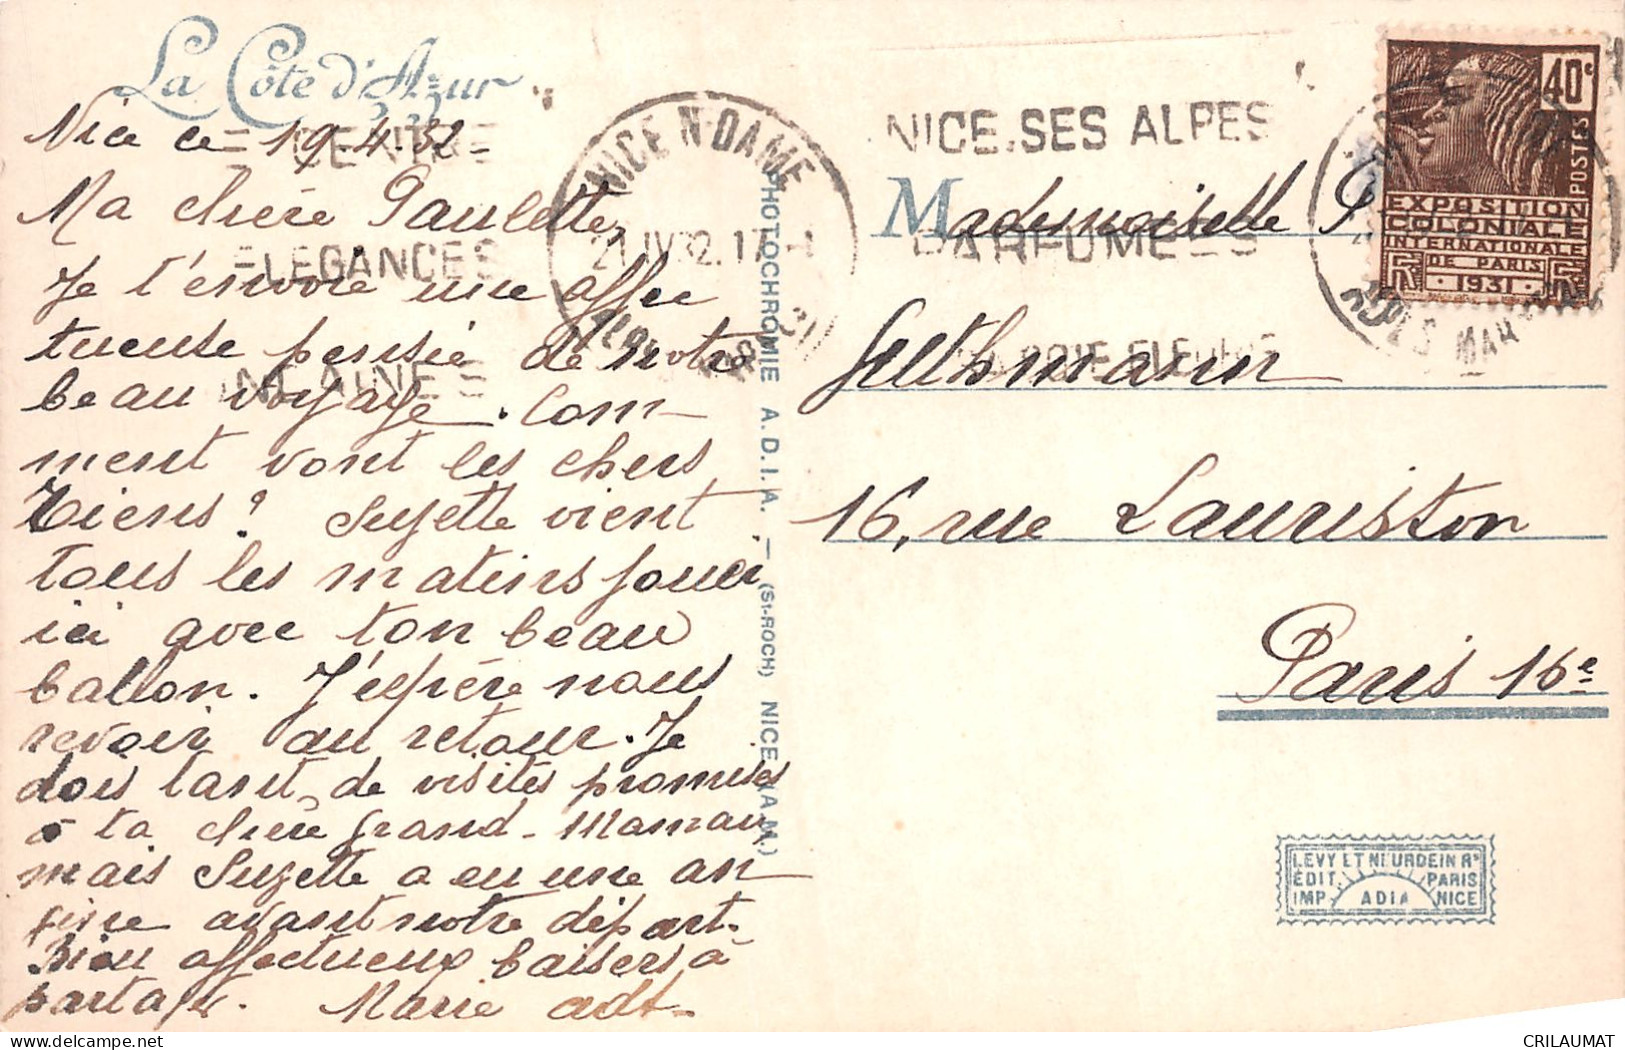 La Côte d'Azur
Nice ce 19-4-32-
Ma chère Paulette,
Je t'envoie une affec
tueuse pensée de notre
beau voyage. Com-
ment vont les chers
tiens? Suzette vient
tous les matins jouer
ici avec ton beau
ballon. J'éspère nous
revoir au retour. Je
dois tant de visites promises
à ta chère Grand-Maman,
mais Suzette a eu une an
gine avant notre départ.
Bien affectueux baisers à
partager. Marie
PHOTOCHROMIE A.D.I.A. — (St-ROCH) NICE (A.M.)
NICE N DAME
21 IV 32. 17
ELEGANCES
NICE.SES ALPES
PARFUMEES
Mademoiselle P
16, rue Lauriston
Paris 16e
40c
POSTES
EXPOSITION
COLONIALE
INTERNATIONALE
DE PARIS
RF · 1931 · RF
LEVY ET NEURDEIN Rs
EDIT. PARIS
IMP. ADIA NICE
CRILAUMAT